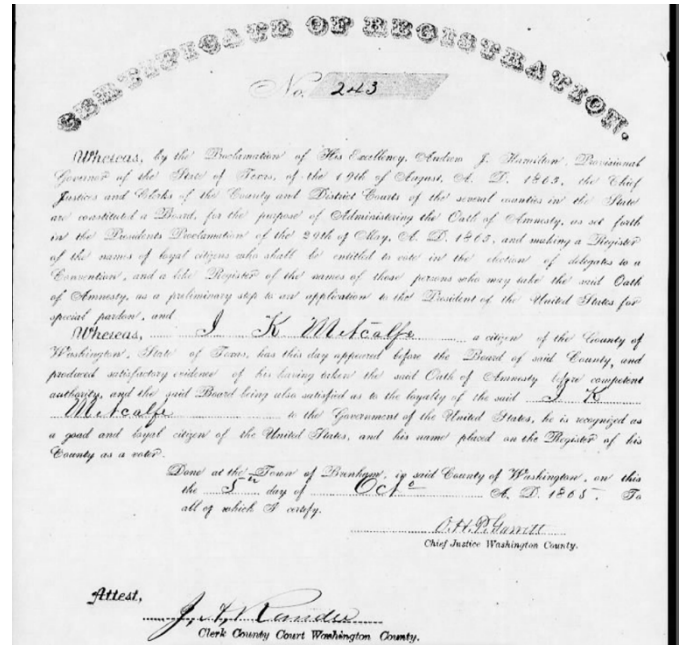 CERTIFICATE OF REGISTRATION.
No. 243
Whereas, by the Proclamation of His Excellency, Andrew J. Hamilton, Provisional
Governor of the State of Texas, of the 19th of August, A. D. 1865, the Chief
Justices and Clerks of the County and District Courts of the several counties in the State
are constituted a Board, for the purpose of Administering the Oath of Amnesty, as set forth
in the Presidents Proclamation of the 29th of May, A. D. 1865, and making a Register
of the names of loyal citizens who shall be entitled to vote in the election of delegates to a
Convention, and a like Register of the names of those persons who may take the said Oath
of Amnesty, as a preliminary step to an application to the President of the United States for
special pardon, and
Whereas, J K Metcalfe a citizen of the County of
Washington, State of Texas, has this day appeared before the Board of said County, and
produced satisfactory evidence of his having taken the said Oath of Amnesty before competent
authority, and the said Board being also satisfied as to the loyalty of the said J K
Metcalfe to the Government of the United States, he is recognized as
a good and loyal citizen of the United States, and his name placed on the Register of his
County as a voter.
Done at the Town of Brenham, in said County of Washington, on this
the 5th day of Octr A. D. 1865. To
all of which I certify.
O.H.P. Garrett
Chief Justice Washington County.
Attest,
J. A.
Clerk County Court Washington County.